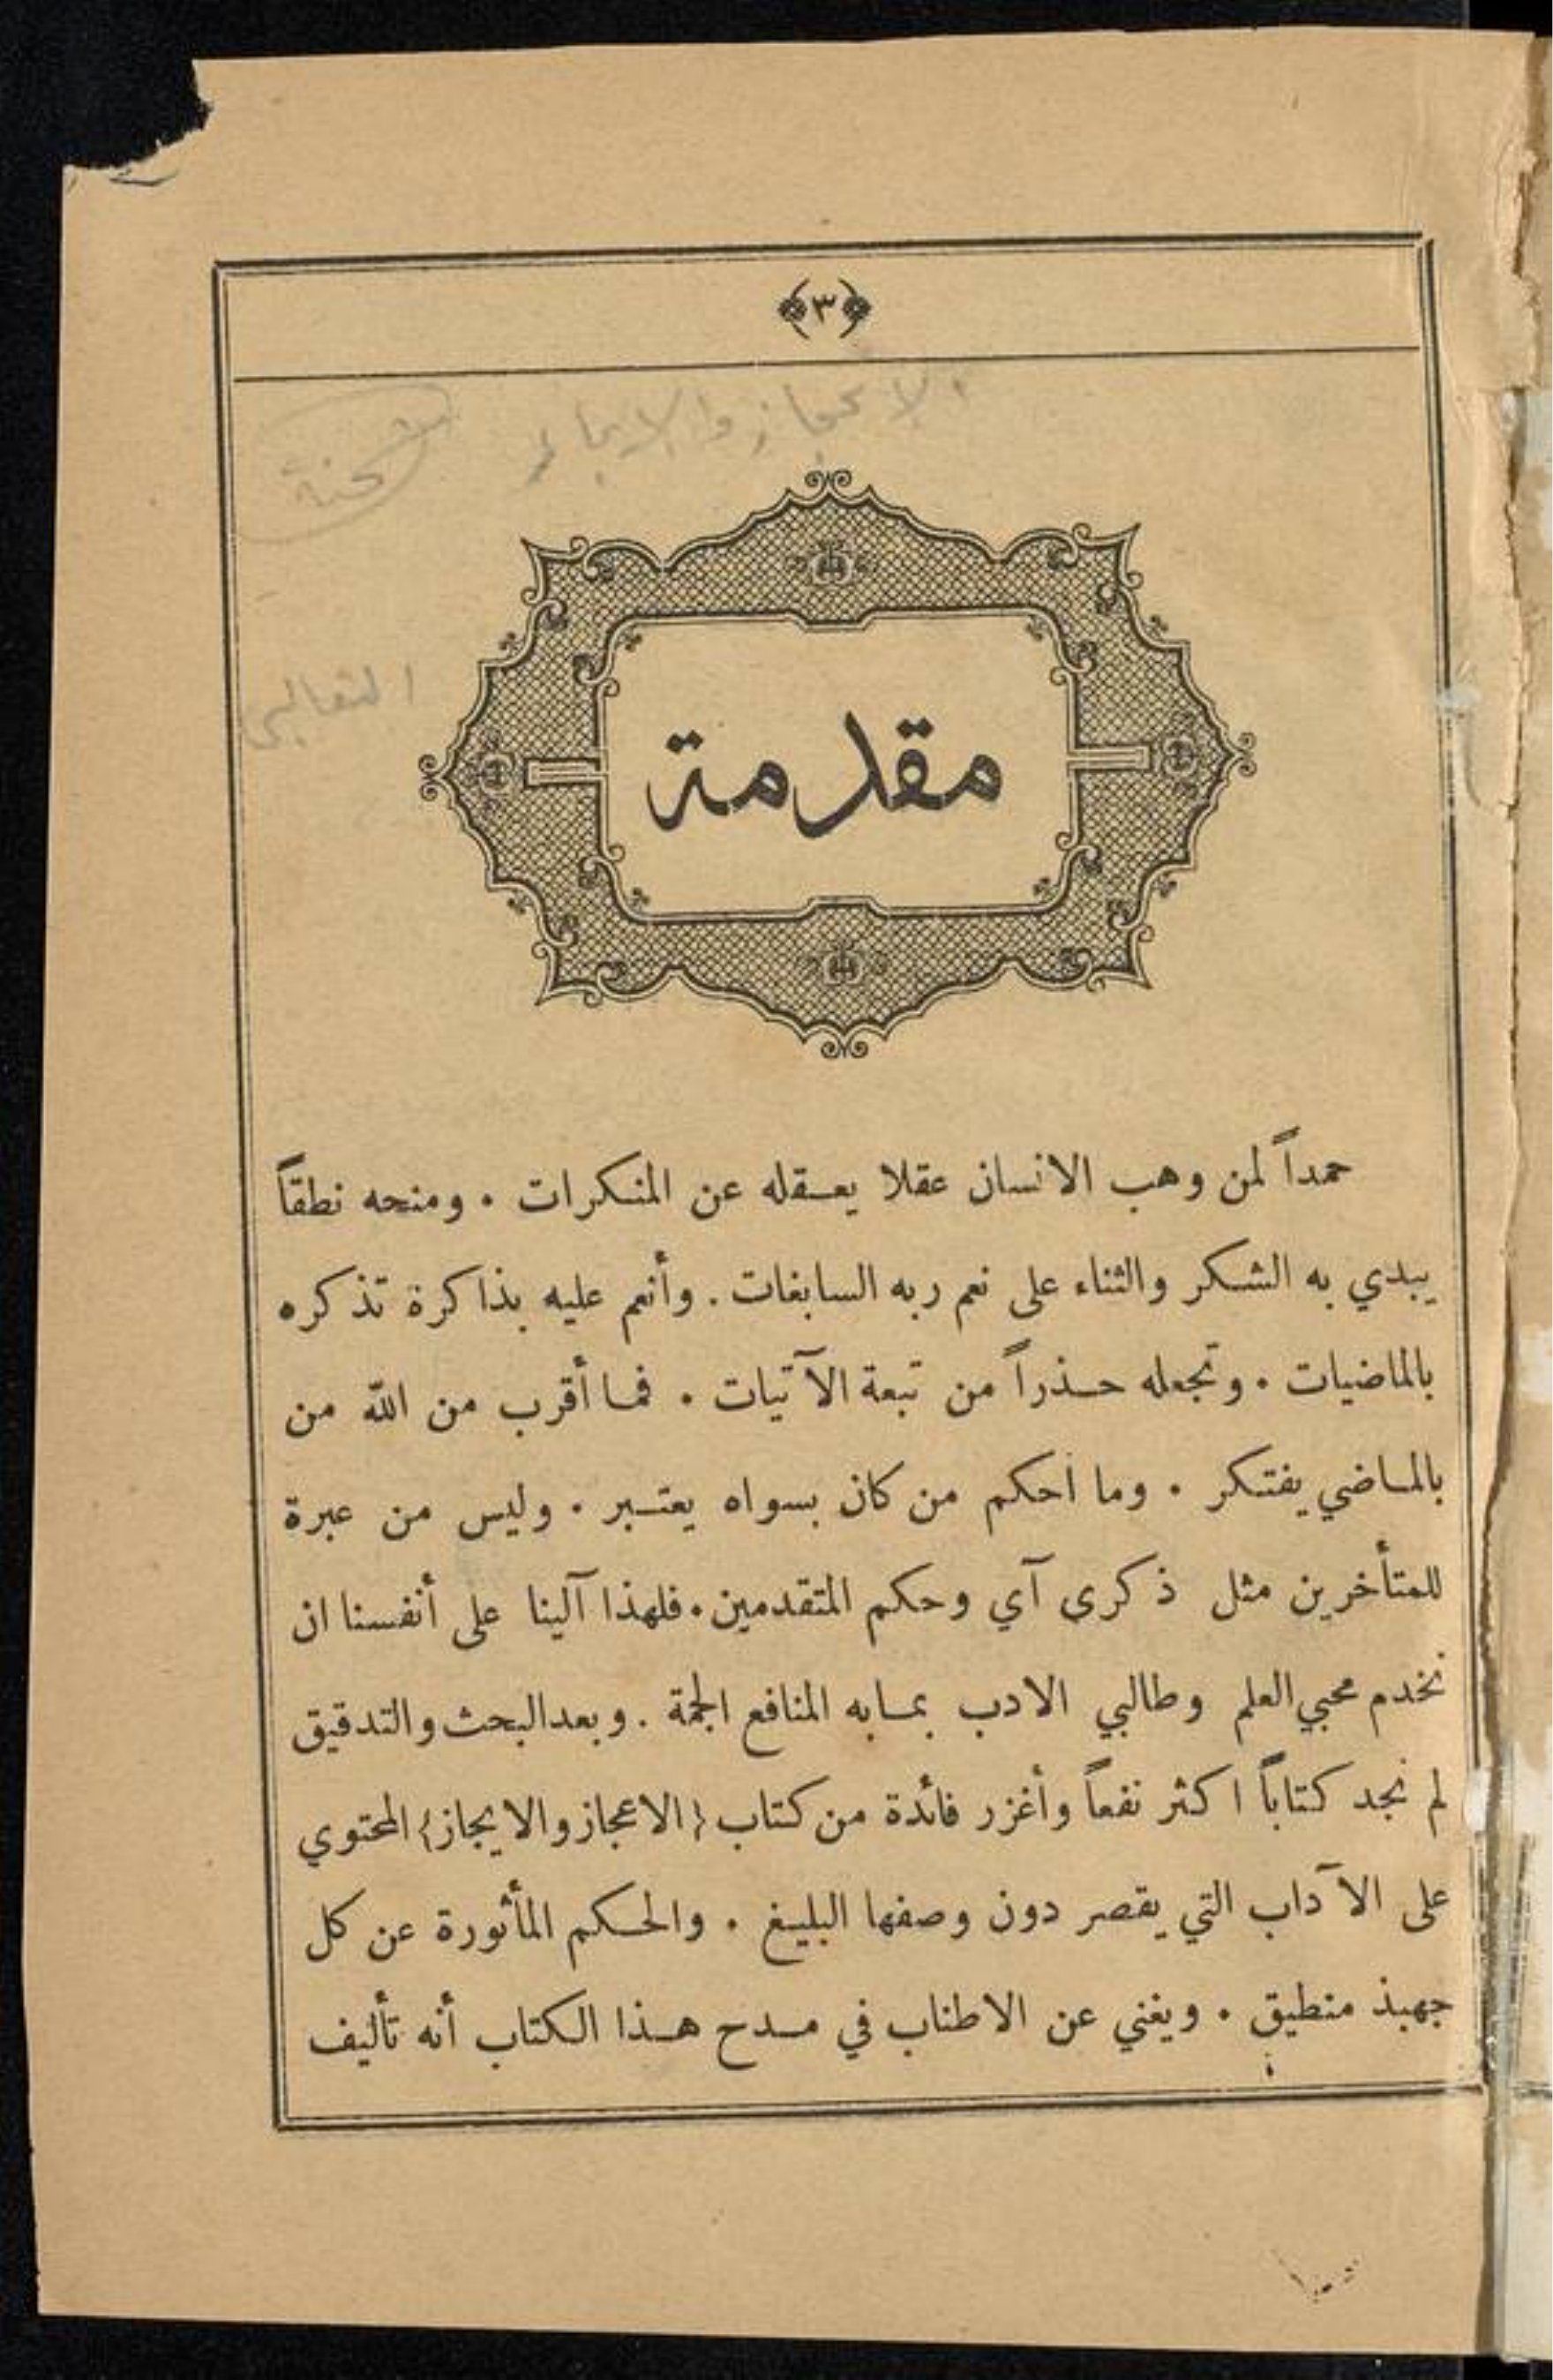 ﴿٣﴾
الاعجاز والايجاز
الثعالبي
مقدمة
حمداً لمن وهب الانسان عقلا يعقله عن المنكرات . ومنحه نطقاً
يبدي به الشكر والثناء على نعم ربه السابغات . وأنعم عليه بذاكرة تذكره
بالماضيات . وتجعله حذراً من تبعة الآتيات . فما أقرب من الله من
بالماضي يفتكر . وما أحكم من كان بسواه يعتبر . وليس من عبرة
للمتأخرين مثل ذكرى آي وحكم المتقدمين . فلهذا آلينا على أنفسنا ان
نخدم محبي العلم وطالبي الادب بما به المنافع الجمة . وبعد البحث والتدقيق
لم نجد كتاباً اكثر نفعاً وأغزر فائدة من كتاب {الاعجاز والايجاز} المحتوي
على الآداب التي يقصر دون وصفها البليغ . والحكم المأثورة عن كل
جهبذ منطيق . ويغني عن الاطناب في مدح هذا الكتاب أنه تأليف